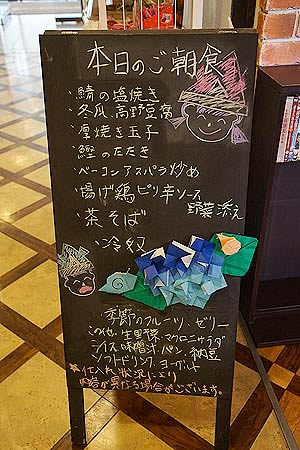 本日のご朝食
・鯖の塩焼き
・冬瓜、高野豆腐
・厚焼き玉子
・鰹のたたき
・ベーコンアスパラ炒め
・揚げ鶏ピリ辛ソース
野菜添え
・茶そば
・冷奴
季節のフルーツ、ゼリー
この他、生野菜、マカロニサラダ
ライス、味噌汁、パン、納豆
ソフトドリンク、ヨーグルト
※仕入れ状況により
内容が異なる場合がございます。